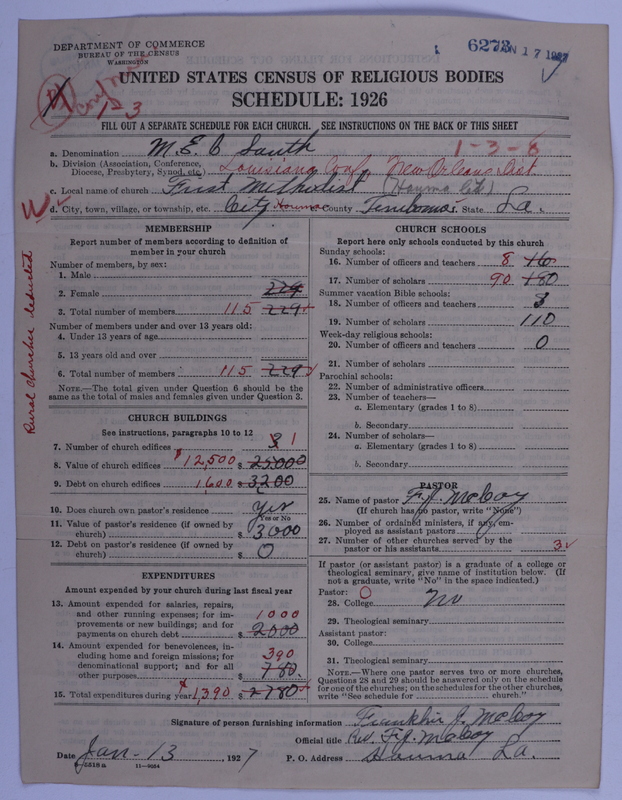 DEPARTMENT OF COMMERCE
BUREAU OF THE CENSUS
WASHINGTON
6273 JAN 17 1927
1 2 3
UNITED STATES CENSUS OF RELIGIOUS BODIES
SCHEDULE: 1926
FILL OUT A SEPARATE SCHEDULE FOR EACH CHURCH. SEE INSTRUCTIONS ON THE BACK OF THIS SHEET
1-3-6
a. Denomination M.E.C South
b. Division (Association, Conference, Diocese, Presbytery, Synod, etc.) Louisiana Conf. New Orleans Dist
c. Local name of church First Methodist (Houma
d. City, town, village, or township, etc. City Houma County State La.
Rural churches deducted
MEMBERSHIP
Report number of members according to definition of member in your church
Number of members, by sex:
1. Male
2. Female 229
3. Total number of members 115 229
Number of members under and over 13 years old:
4. Under 13 years of age
5. 13 years old and over
6. Total number of members 115 229
NOTE.—The total given under Question 6 should be the same as the total of males and females given under Question 3.
CHURCH BUILDINGS
See instructions, paragraphs 10 to 12
7. Number of church edifices 3 1
8. Value of church edifices $12,500 $ 25000
9. Debt on church edifices 1,600 $ 3200
10. Does church own pastor's residence yes
Yes or No
11. Value of pastor's residence (if owned by church) $ 3000
12. Debt on pastor's residence (if owned by church) $ 0
EXPENDITURES
Amount expended by your church during last fiscal year
13. Amount expended for salaries, repairs, and other running expenses; for improvements or new buildings; and for payments on church debt 1000 $ 2000
14. Amount expended for benevolences, including home and foreign missions; for denominational support; and for all other purposes 390 $ 780.
15. Total expenditures during year $1,390 $ 2780
CHURCH SCHOOLS
Report here only schools conducted by this church
Sunday schools:
16. Number of officers and teachers 8 16
17. Number of scholars 90 180
Summer vacation Bible schools:
18. Number of officers and teachers 3
19. Number of scholars 110
Week-day religious schools:
20. Number of officers and teachers 0
21. Number of scholars
Parochial schools:
22. Number of administrative officers
23. Number of teachers—
a. Elementary (grades 1 to 8)
b. Secondary
24. Number of scholars—
a. Elementary (grades 1 to 8)
b. Secondary
PASTOR
25. Name of pastor F.J. McCoy
(If church has no pastor, write "None")
26. Number of ordained ministers, if any, employed as assistant pastors
27. Number of other churches served by the pastor or his assistants 3
If pastor (or assistant pastor) is a graduate of a college or theological seminary, give name of institution below. (If not a graduate, write "No" in the space indicated.)
Pastor: 0
28. College No
29. Theological seminary
Assistant pastor:
30. College
31. Theological seminary
NOTE.—Where one pastor serves two or more churches, Questions 28 and 29 should be answered only on the schedule for one of the churches; on the schedules for the other churches, write "See schedule for church."
Signature of person furnishing information Franklin J. McCoy
Official title Rev. F.J. McCoy
Date Jan - 13, 1927 P. O. Address Houma La.
8-5518a 11-9084